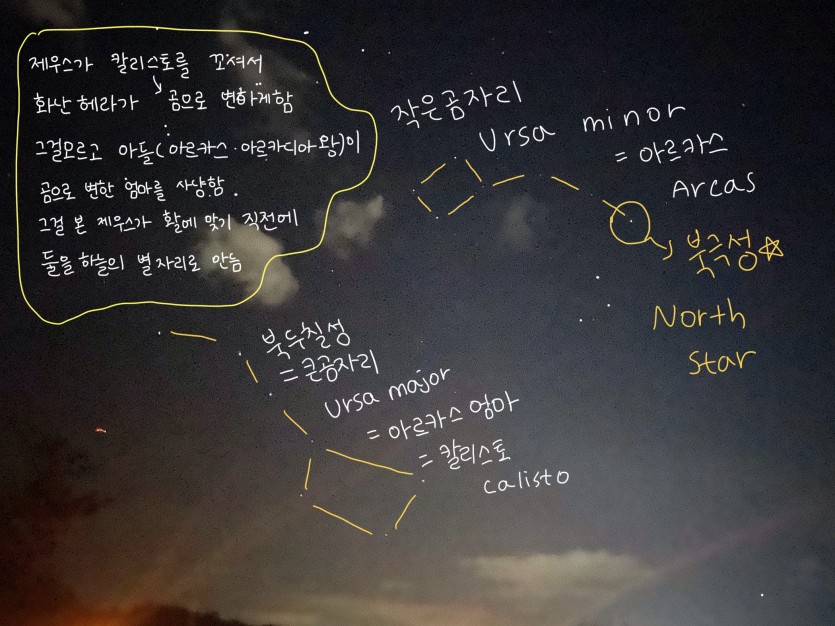 제우스가 칼리스토를 꼬셔서
화난 헤라가 곰으로 변하게함
그걸모르고 아들(아르카스·아르카디아왕)이
곰으로 변한 엄마를 사냥함.
그걸 본 제우스가 활에 맞기 직전에
둘을 하늘의 별자리로 만듬
작은곰자리
Ursa minor
= 아르카스
Arcas
북극성
North
Star
북두칠성
= 큰곰자리
Ursa major
= 아르카스 엄마
= 칼리스토
calisto